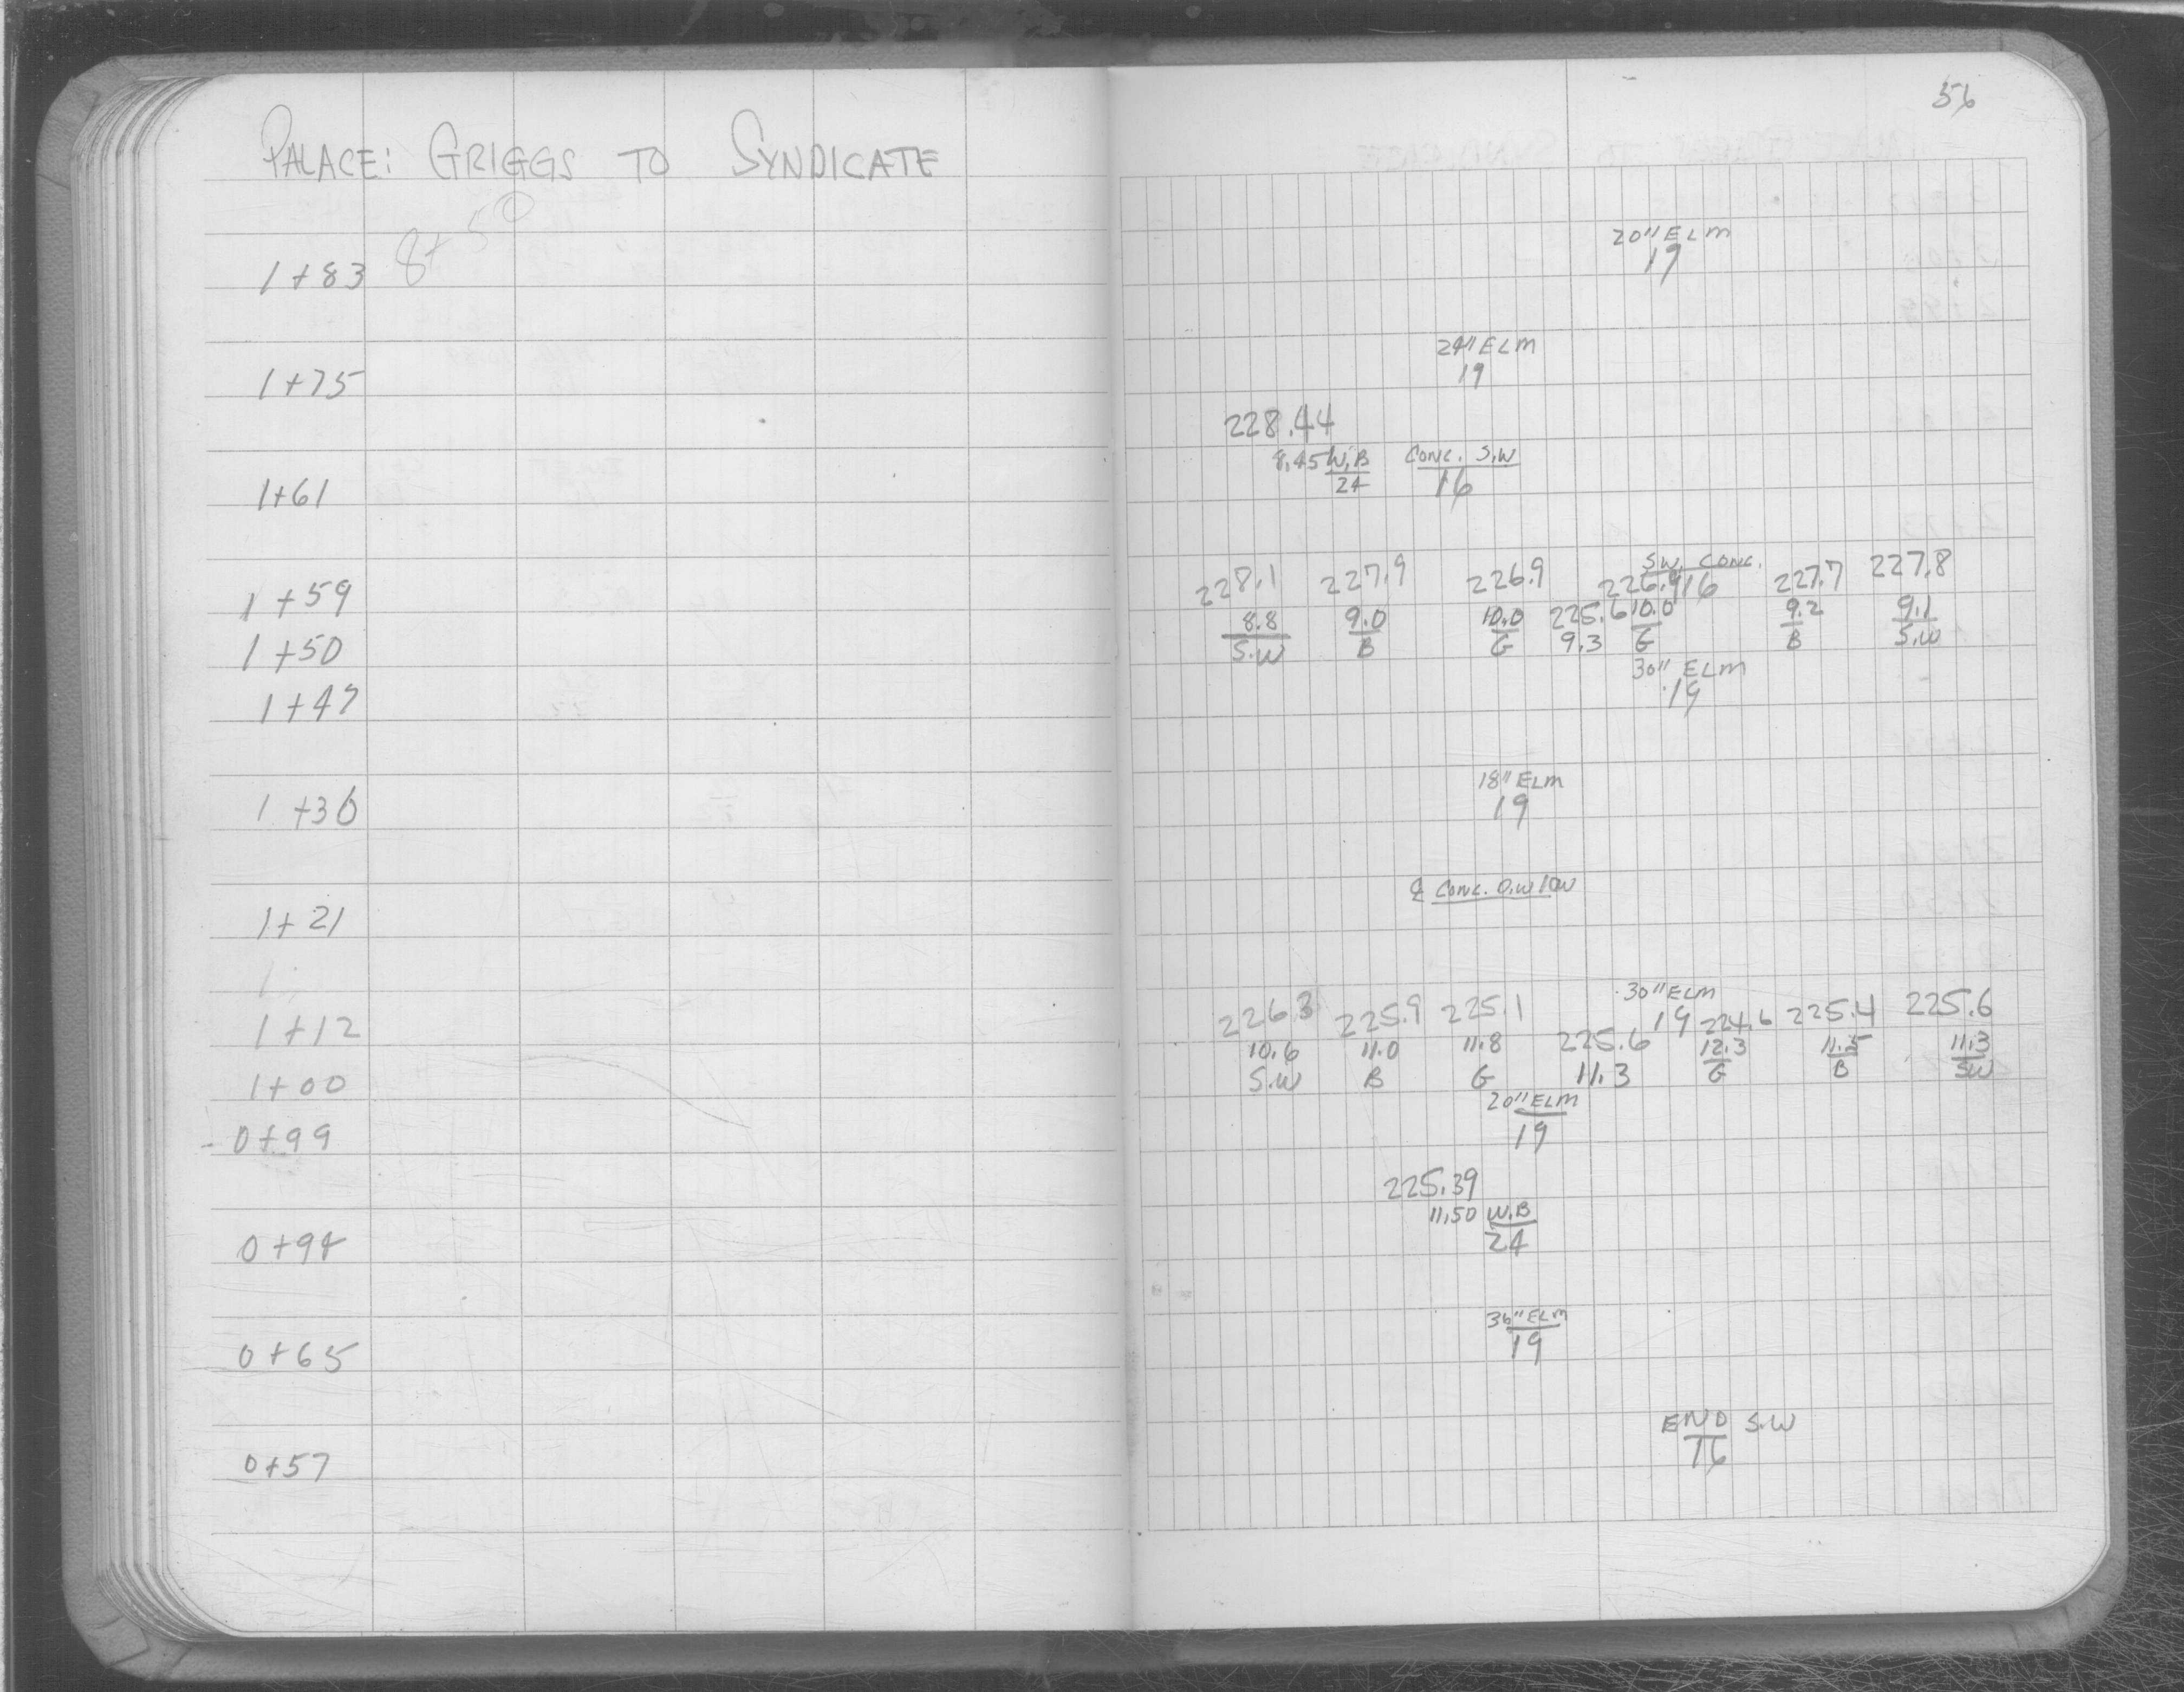 56
PALACE: GRIGGS TO SYNDICATE
8+50
20" ELM
1+83 19
24" ELM
1+75 19
228.44
8.45 W.B CONC. S.W
1+61 24 16
S.W. CONC.
1+59 228.1 227.9 226.9 226.9 16 227.7 227.8
8.8 9.0 10.0 225.6 10.0 9.2 9.1
1+50 S.W B G 9.3 G B S.W
30" ELM
1+47 19
18" ELM
1+36 19
℄ CONC. O.W 10W
1+21
1
30" ELM
1+12 226.3 225.9 225.1 19 224.6 225.4 225.6
10.6 11.0 11.8 225.6 12.3 11.5 11.3
1+00 S.W B G 11.3 G B SW
20" ELM
-0+99 19
225.39
11.50 W.B
0+94 24
36" ELM
0+65 19
END S.W
0+57 16